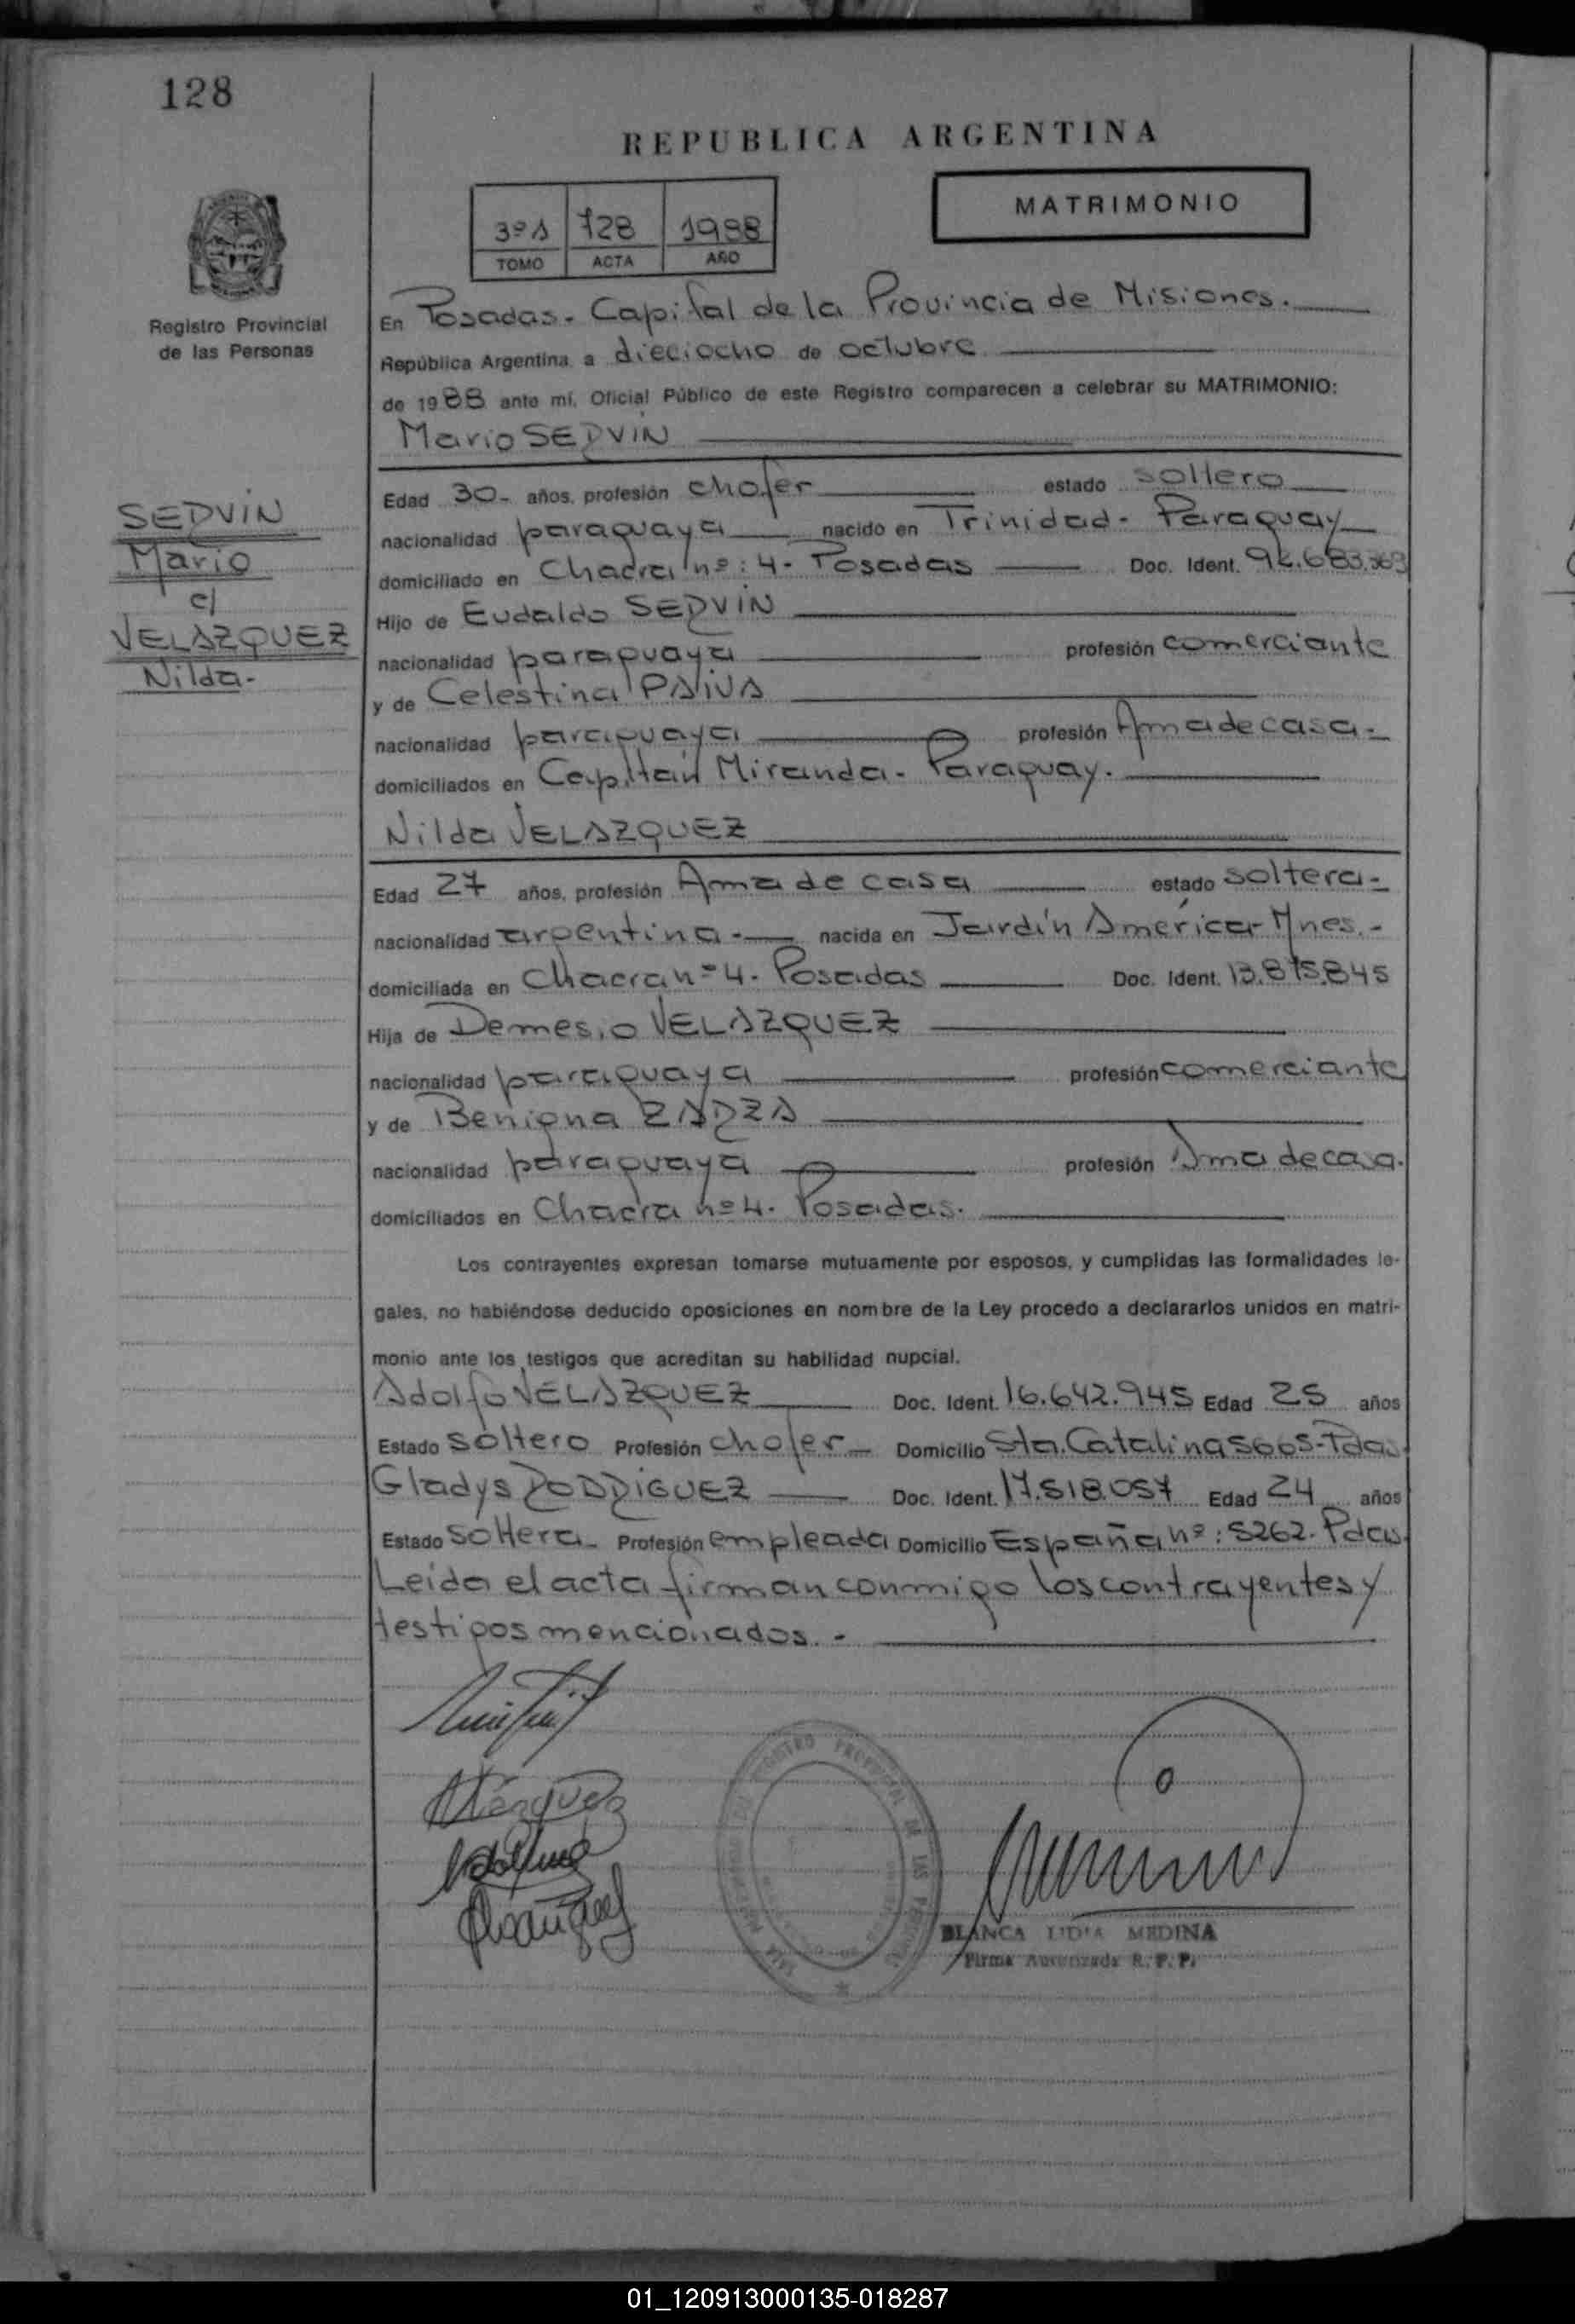 128
REPUBLICA ARGENTINA
MATRIMONIO
3º1 728 1988
TOMO ACTA AÑO
Registro Provincial
de las Personas
En Posadas - Capital de la Provincia de Misiones.
República Argentina a dieciocho de octubre
de 1988 ante mí, Oficial Público de este Registro comparecen a celebrar su MATRIMONIO:
Mario SERVIN
SERVIN
Mario
c/
VELAZQUEZ
Nilda.-
Edad 30- años, profesión chofer estado soltero
nacionalidad paraguaya nacido en Trinidad - Paraguay
domiciliado en Chacra nº: 4 - Posadas Doc. Ident. 92.683.363
Hijo de Eudaldo SERVIN
nacionalidad paraguaya profesión comerciante
y de Celestina PAIVA
nacionalidad paraguaya profesión Ama de casa -
domiciliados en Capitán Miranda - Paraguay.
Nilda VELAZQUEZ
Edad 27 años, profesión Ama de casa estado soltera -
nacionalidad argentina - nacida en Jardín América - Mnes. -
domiciliada en Chacra nº 4 - Posadas Doc. Ident. 13.875.845
Hija de Demesio VELAZQUEZ
nacionalidad paraguaya profesión comerciante
y de Benigna ZARZA
nacionalidad paraguaya profesión Ama de casa.
domiciliados en Chacra nº 4 - Posadas.
Los contrayentes expresan tomarse mutuamente por esposos, y cumplidas las formalidades le-
gales, no habiéndose deducido oposiciones en nombre de la Ley procedo a declararlos unidos en matri-
monio ante los testigos que acreditan su habilidad nupcial.
Adolfo VELAZQUEZ Doc. Ident. 16.642.945 Edad 25 años
Estado soltero Profesión chofer - Domicilio Sta. Catalina 5665 - Pdas.
Gladys RODRIGUEZ Doc. Ident. 17.518.057 Edad 24 años
Estado soltera - Profesión empleada Domicilio España nº: 5262. Pdas.
Leida el acta firman conmigo los contrayentes y
testigos mencionados. -
BLANCA LIDIA MEDINA
Firma Autorizada R. P. P.
01_120913000135-018287